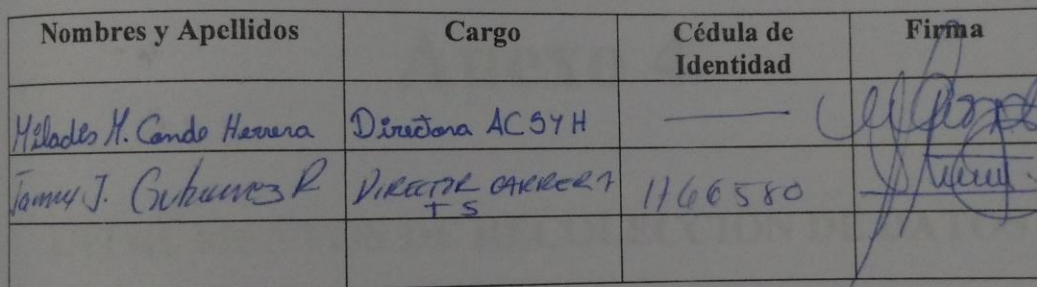 Nombres y Apellidos Cargo Cédula de Identidad Firma
Milades M. Conde Herrera Directora ACSYH
J. Gutierrez R DIRECTOR CARRERA TS 1166580
DE RECOLECCIÓN DE DATOS